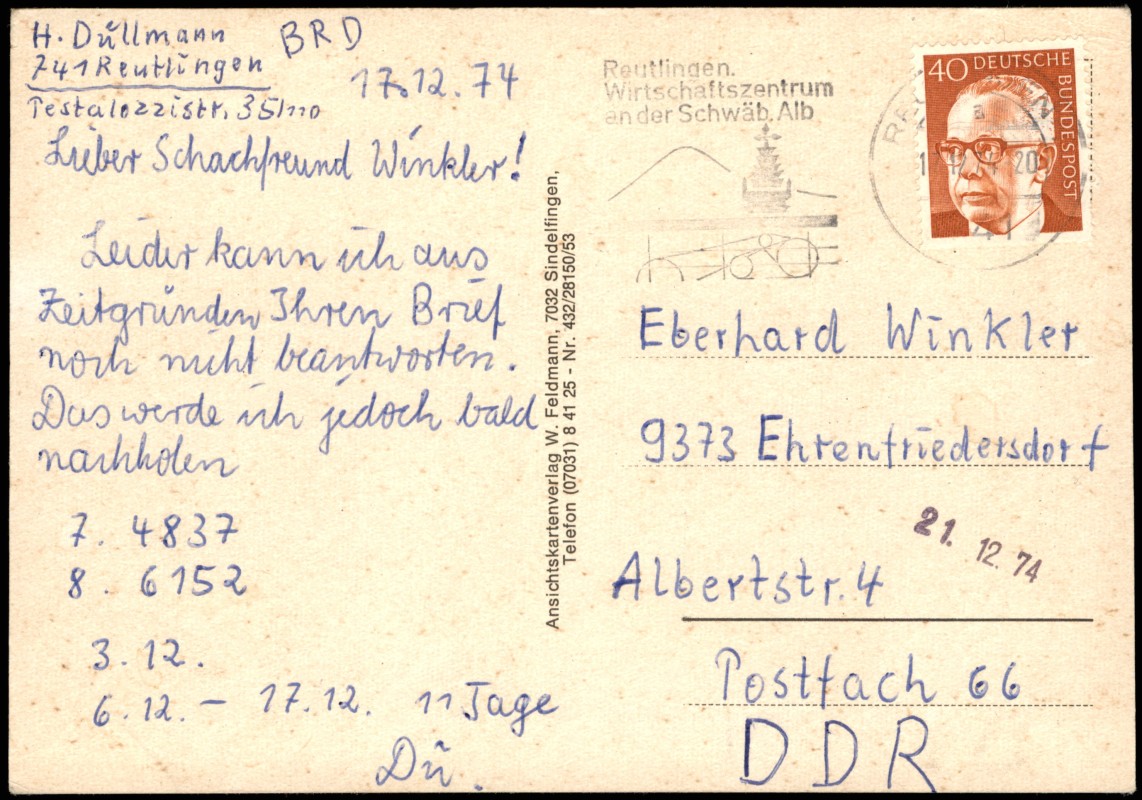 H. Düllmann
BRD
741 Reutlingen
Pestalozzistr. 35/110
17.12.74
Lieber Schachfreund Winkler!
Leider kann ich aus
Zeitgründen Ihren Brief
noch nicht beantworten.
Das werde ich jedoch bald
nachholen
7. 4837
8. 6152
3.12.
6.12. – 17.12. 11 Tage
Dü.
Ansichtskartenverlag W. Feldmann, 7032 Sindelfingen,
Telefon (07031) 8 41 25 - Nr. 432/28150/53
Reutlingen.
Wirtschaftszentrum
an der Schwäb. Alb
40 DEUTSCHE
BUNDESPOST
a
Eberhard Winkler
9373 Ehrenfriedersdorf
21. 12. 74
Albertstr. 4
Postfach 66
DDR